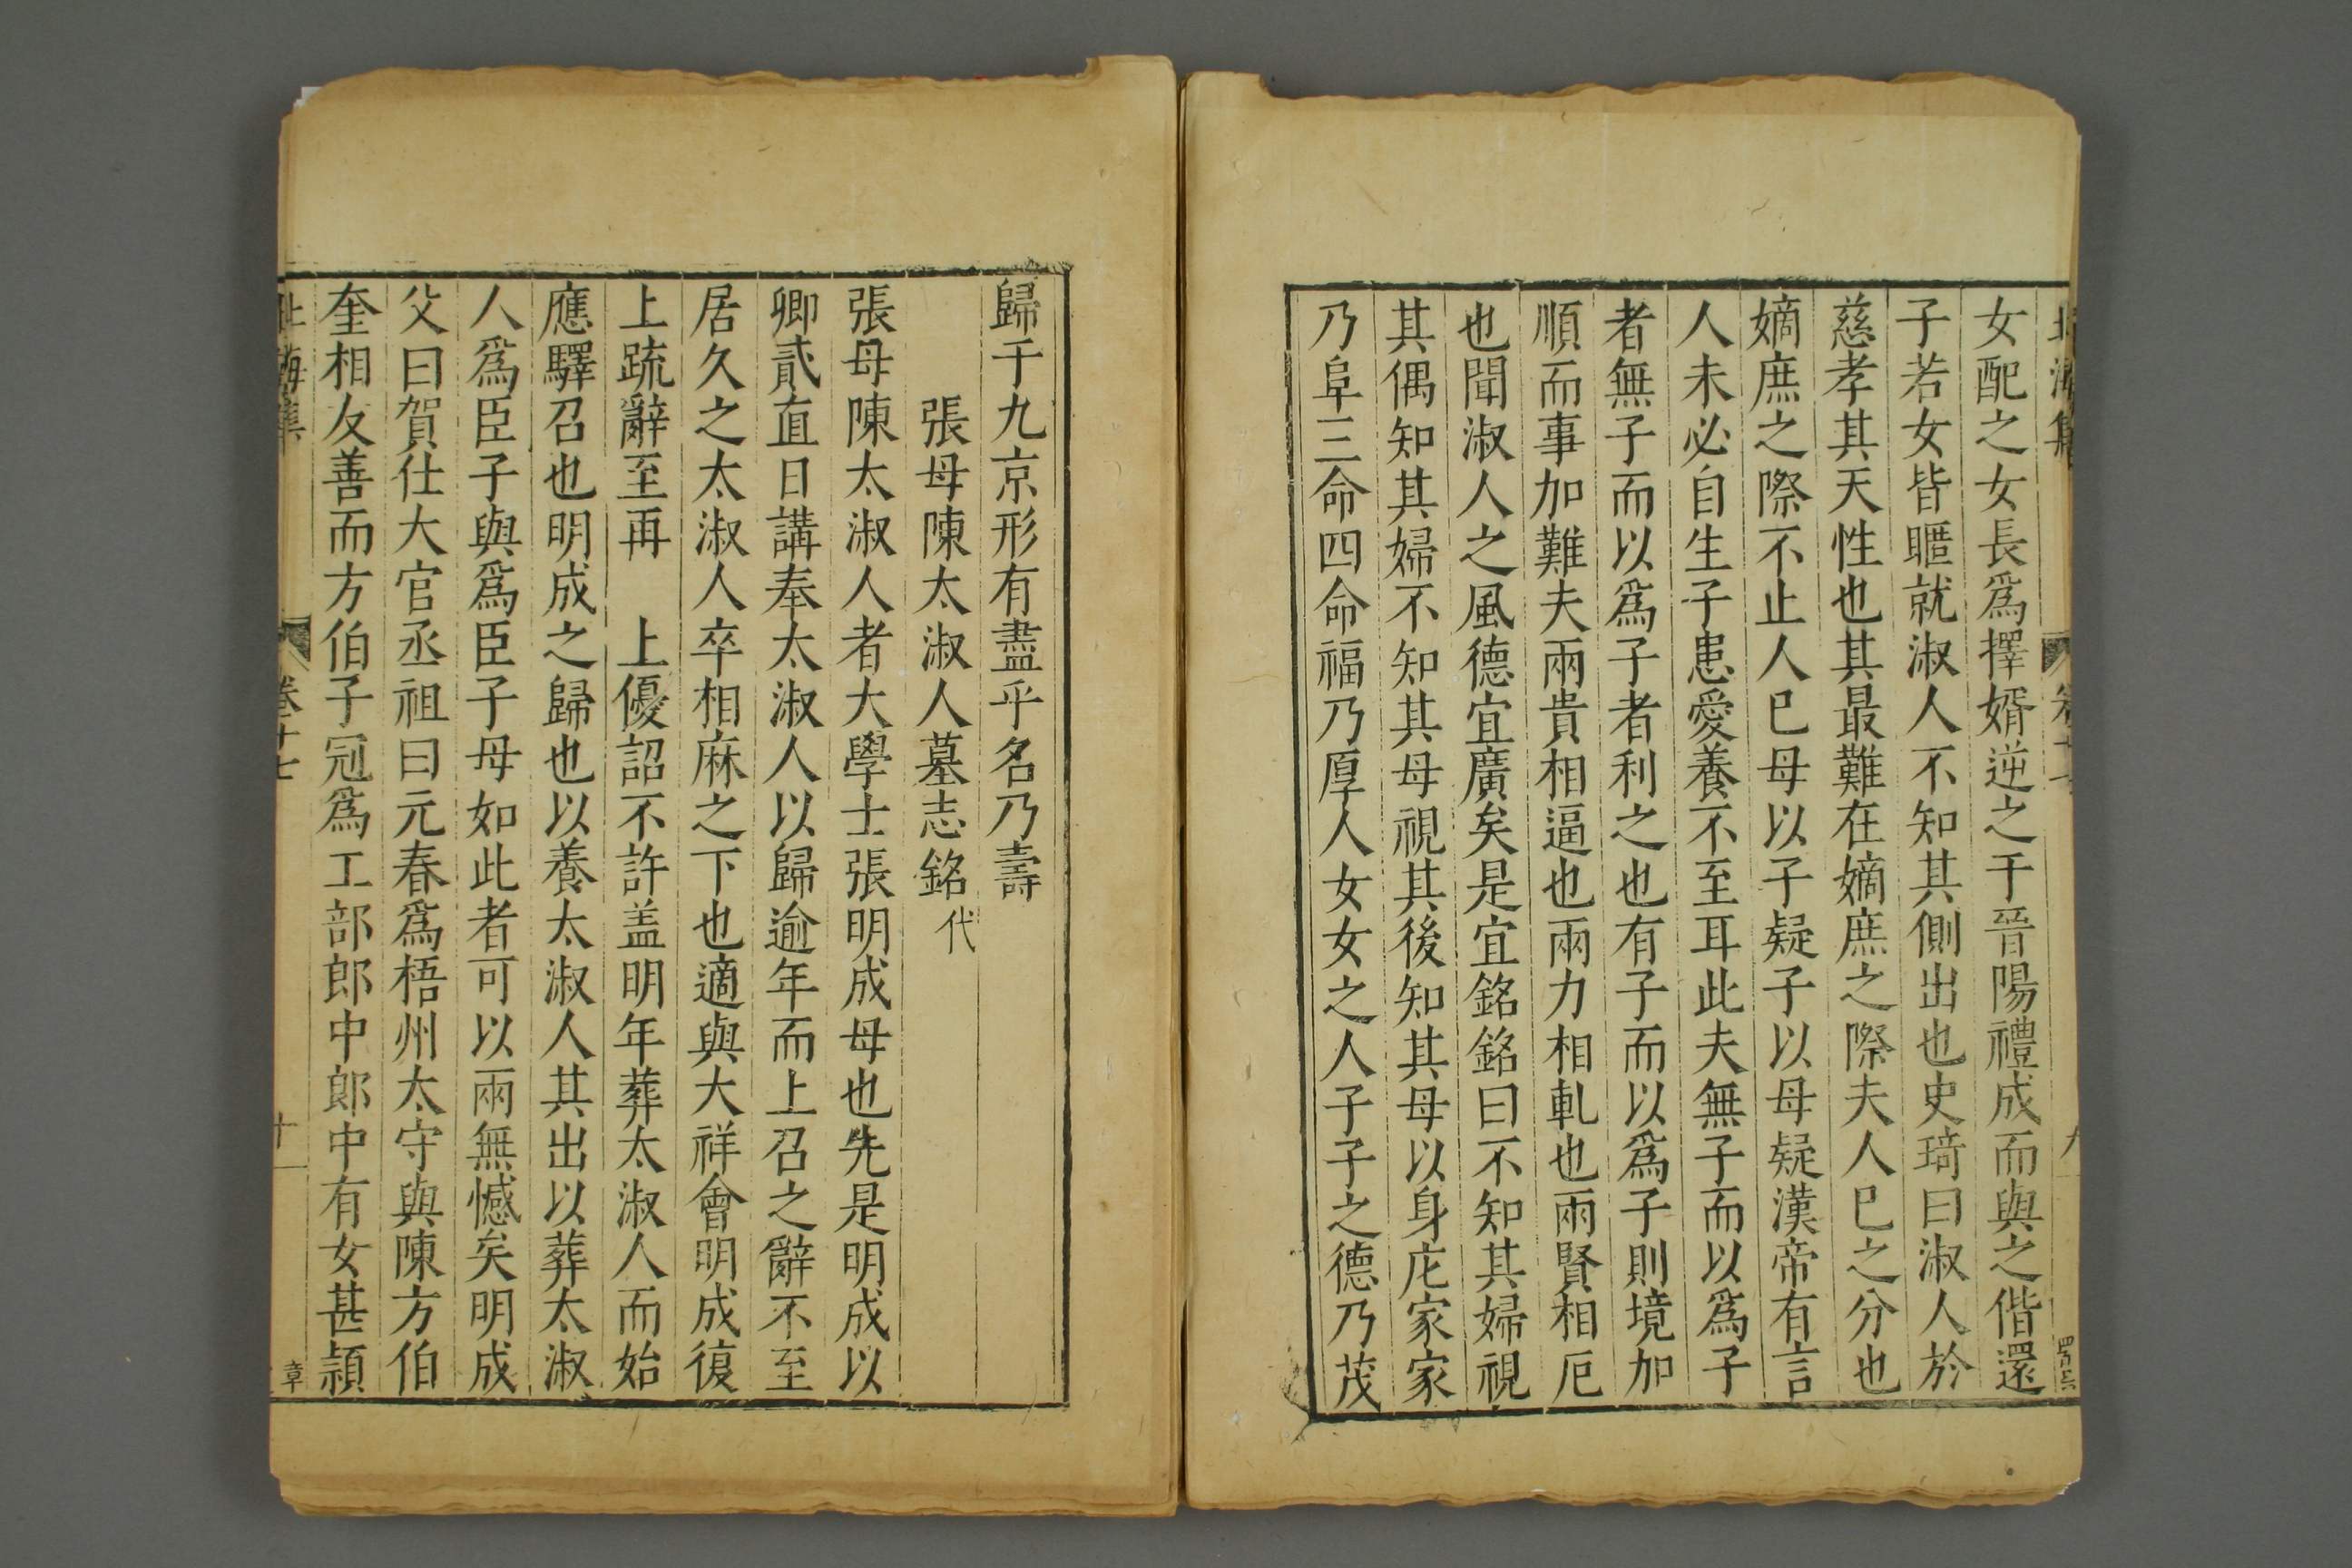 北海集 卷十七 九
女配之女長爲擇婿逆之于晉陽禮成而與之偕還
子若女皆暱就淑人不知其側出也史琦曰淑人於
慈孝其天性也其最難在嫡庶之際夫人巳之分也
嫡庶之際不止人巳母以子疑子以母疑漢帝有言
人未必自生子患愛養不至耳此夫無子而以爲子
者無子而以爲子者利之也有子而以爲子則境加
順而事加難夫兩貴相逼也兩力相軋也兩賢相厄
也聞淑人之風德宜廣矣是宜銘銘曰不知其婦視
其偶知其婦不知其母視其後知其母以身庀家家
乃阜三命四命福乃厚人女女之人子子之德乃茂
歸于九京形有盡乎名乃壽
張母陳太淑人墓志銘代
張母陳太淑人者大學士張明成母也先是明成以
卿貳直日講奉太淑人以歸逾年而上召之辭不至
居久之太淑人卒相麻之下也適與大祥會明成復
上疏辭至再　上優詔不許盖明年葬太淑人而始
應驛召也明成之歸也以養太淑人其出以葬太淑
人爲臣子與爲臣子母如此者可以兩無憾矣明成
父曰賀仕大官丞祖曰元春爲梧州太守與陳方伯
奎相友善而方伯子冠爲工部郎中郎中有女甚頴
北海集 卷十七 十 章